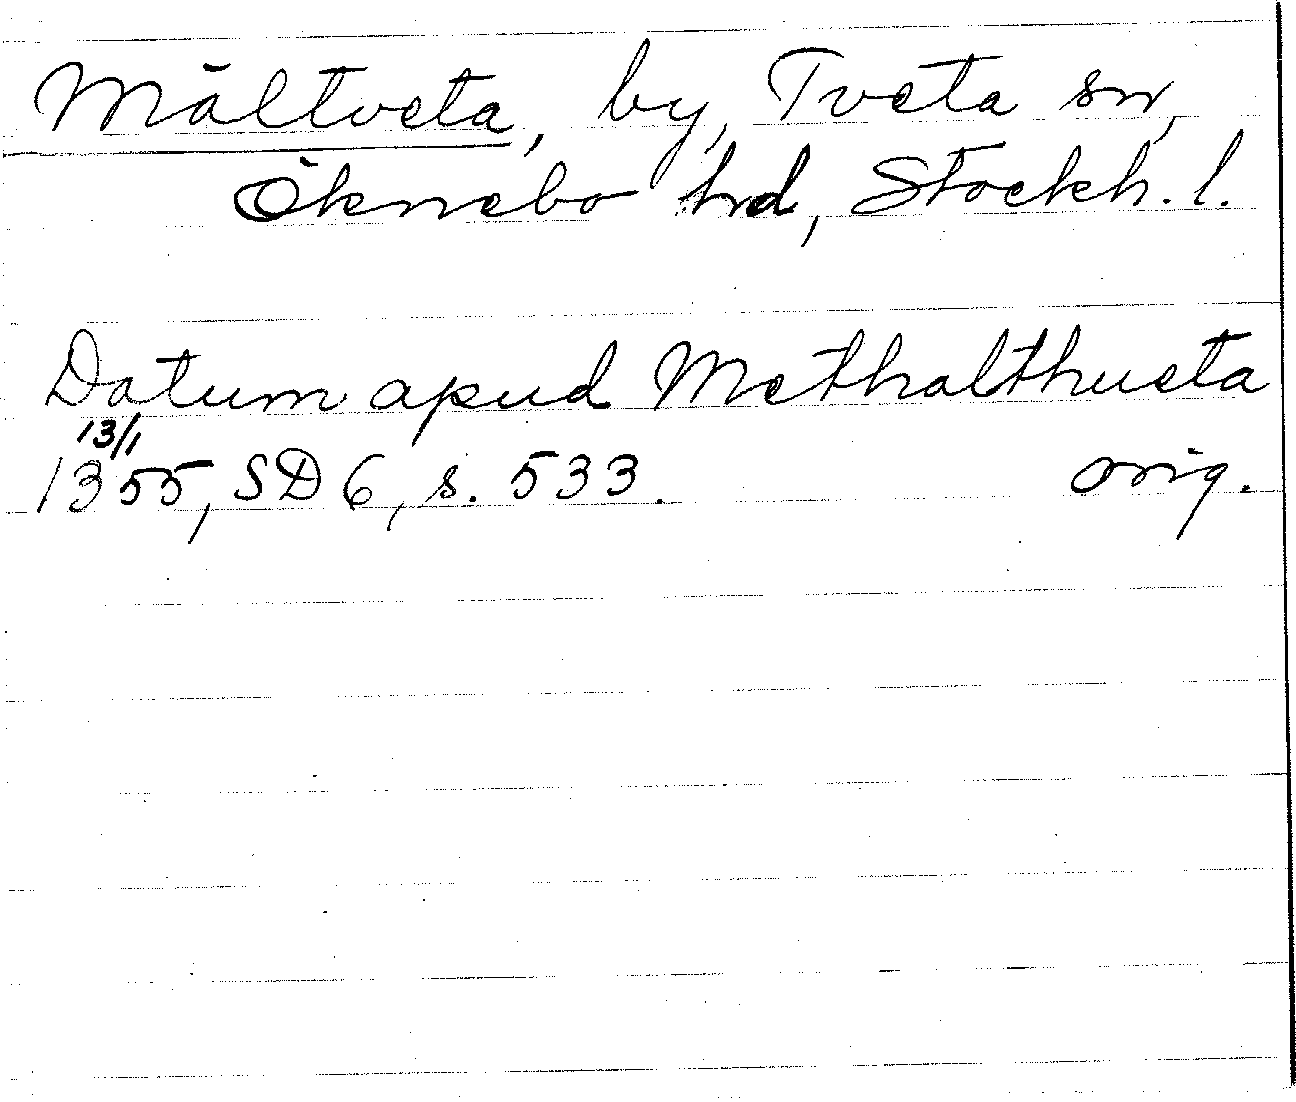 Mältveta, by, Tveta sn,
Öknebo hrd, Stockh. l.
Datum apud Methalthueta
13/1
1355, SD 6, s. 533. orig.